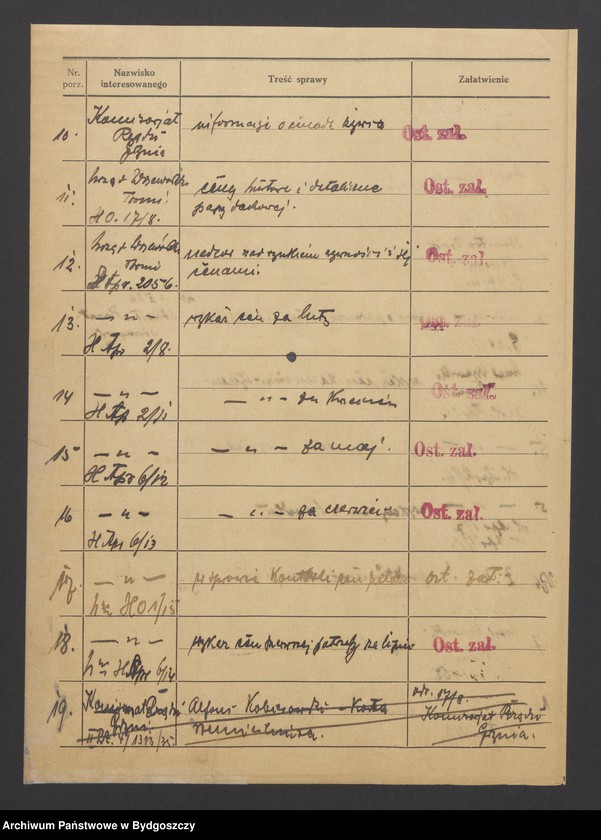 Nr. porz.
Nazwisko interesowanego
Treść sprawy
Załatwienie
10.
Komisarjat
Rządu
Gdynia
informacji o
Ost. zał.
11.
Urząd Wojewódzki
Toruń
HO. 17/8.
ceny hurtowe i detaliczne
papy dachowej.
Ost. zał.
12.
Urząd Wojewódzki
Toruń
Apr. 2056.
nadzór nad rynkiem żywności i jej
cenami.
Ost. zał.
13.
— „ —
H Apr 2/8.
wykaz cen za luty
Ost. zał.
14
— „ —
H Ap 2/11
— „ — za kwiecień
Ost. zał.
15
— „ —
H Apr 6/12
— „ — za maj.
Ost. zał.
16
— „ —
H Apr 6/13
— „ — za czerwiec
Ost. zał.
17.
— „ —
HO 1/15
w sprawie kontroli
ost. zał.
18.
— „ —
H Apr 6/14
wykaz cen pierwszej potrzeby za lipiec
Ost. zał.
19.
Komisarjat Rządu
Gdynia
1313/35
Alfons
odr. 17/8.
Komisarjat Rządu
Gdynia.
Archiwum Państwowe w Bydgoszczy